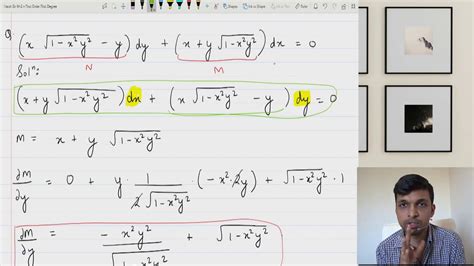 Q (x √(1-x²y²) - y) dy + (x + y √(1-x²y²)) dx = 0
N M
Solⁿ:
(x + y √(1-x²y²)) dx + (x √(1-x²y²) - y) dy = 0
M = x + y √(1-x²y²)
∂M/∂y = 0 + y · 1/(2√(1-x²y²)) · (-x²·2y) + √(1-x²y²) · 1
∂M/∂y = - x²y²/√(1-x²y²) + √(1-x²y²)